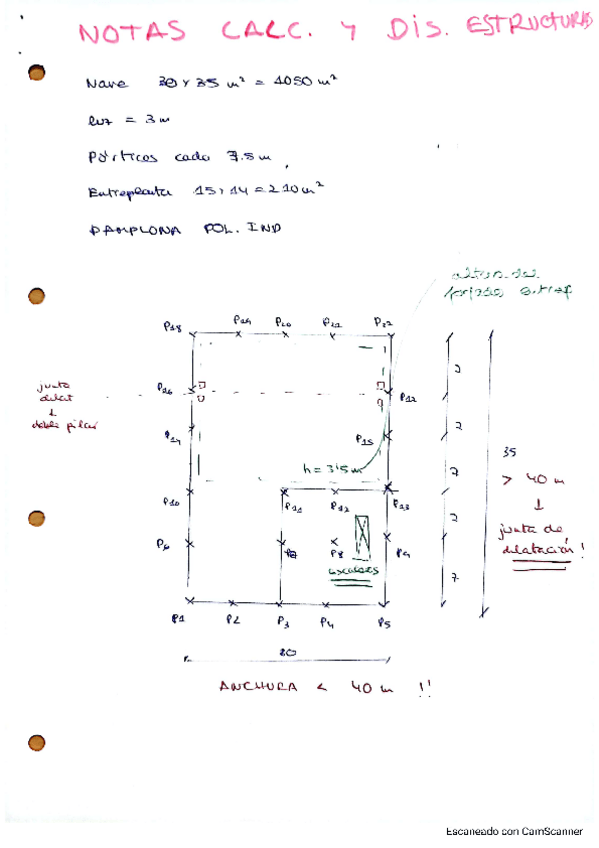 NOTAS CALC. Y DIS. ESTRUCTURAS
Nave 30 x 35 m² = 1050 m²
luz = 3 m
Pórticos cada 7.5 m
Entreplanta 15 x 14 = 210 m²
PAMPLONA POL. IND
altura del
forjado entrep
P18 P19 P20 P21 P22
junta
dilat
doble pilar
P16 P17
P14 P15
7
7
7
7
7
35
> 40 m
junta de
dilatación!
h = 3'5 m
P10 P11 P12 P13
P6 P7 P8 P9
escaleras
P1 P2 P3 P4 P5
30
ANCHURA < 40 m !!
Escaneado con CamScanner